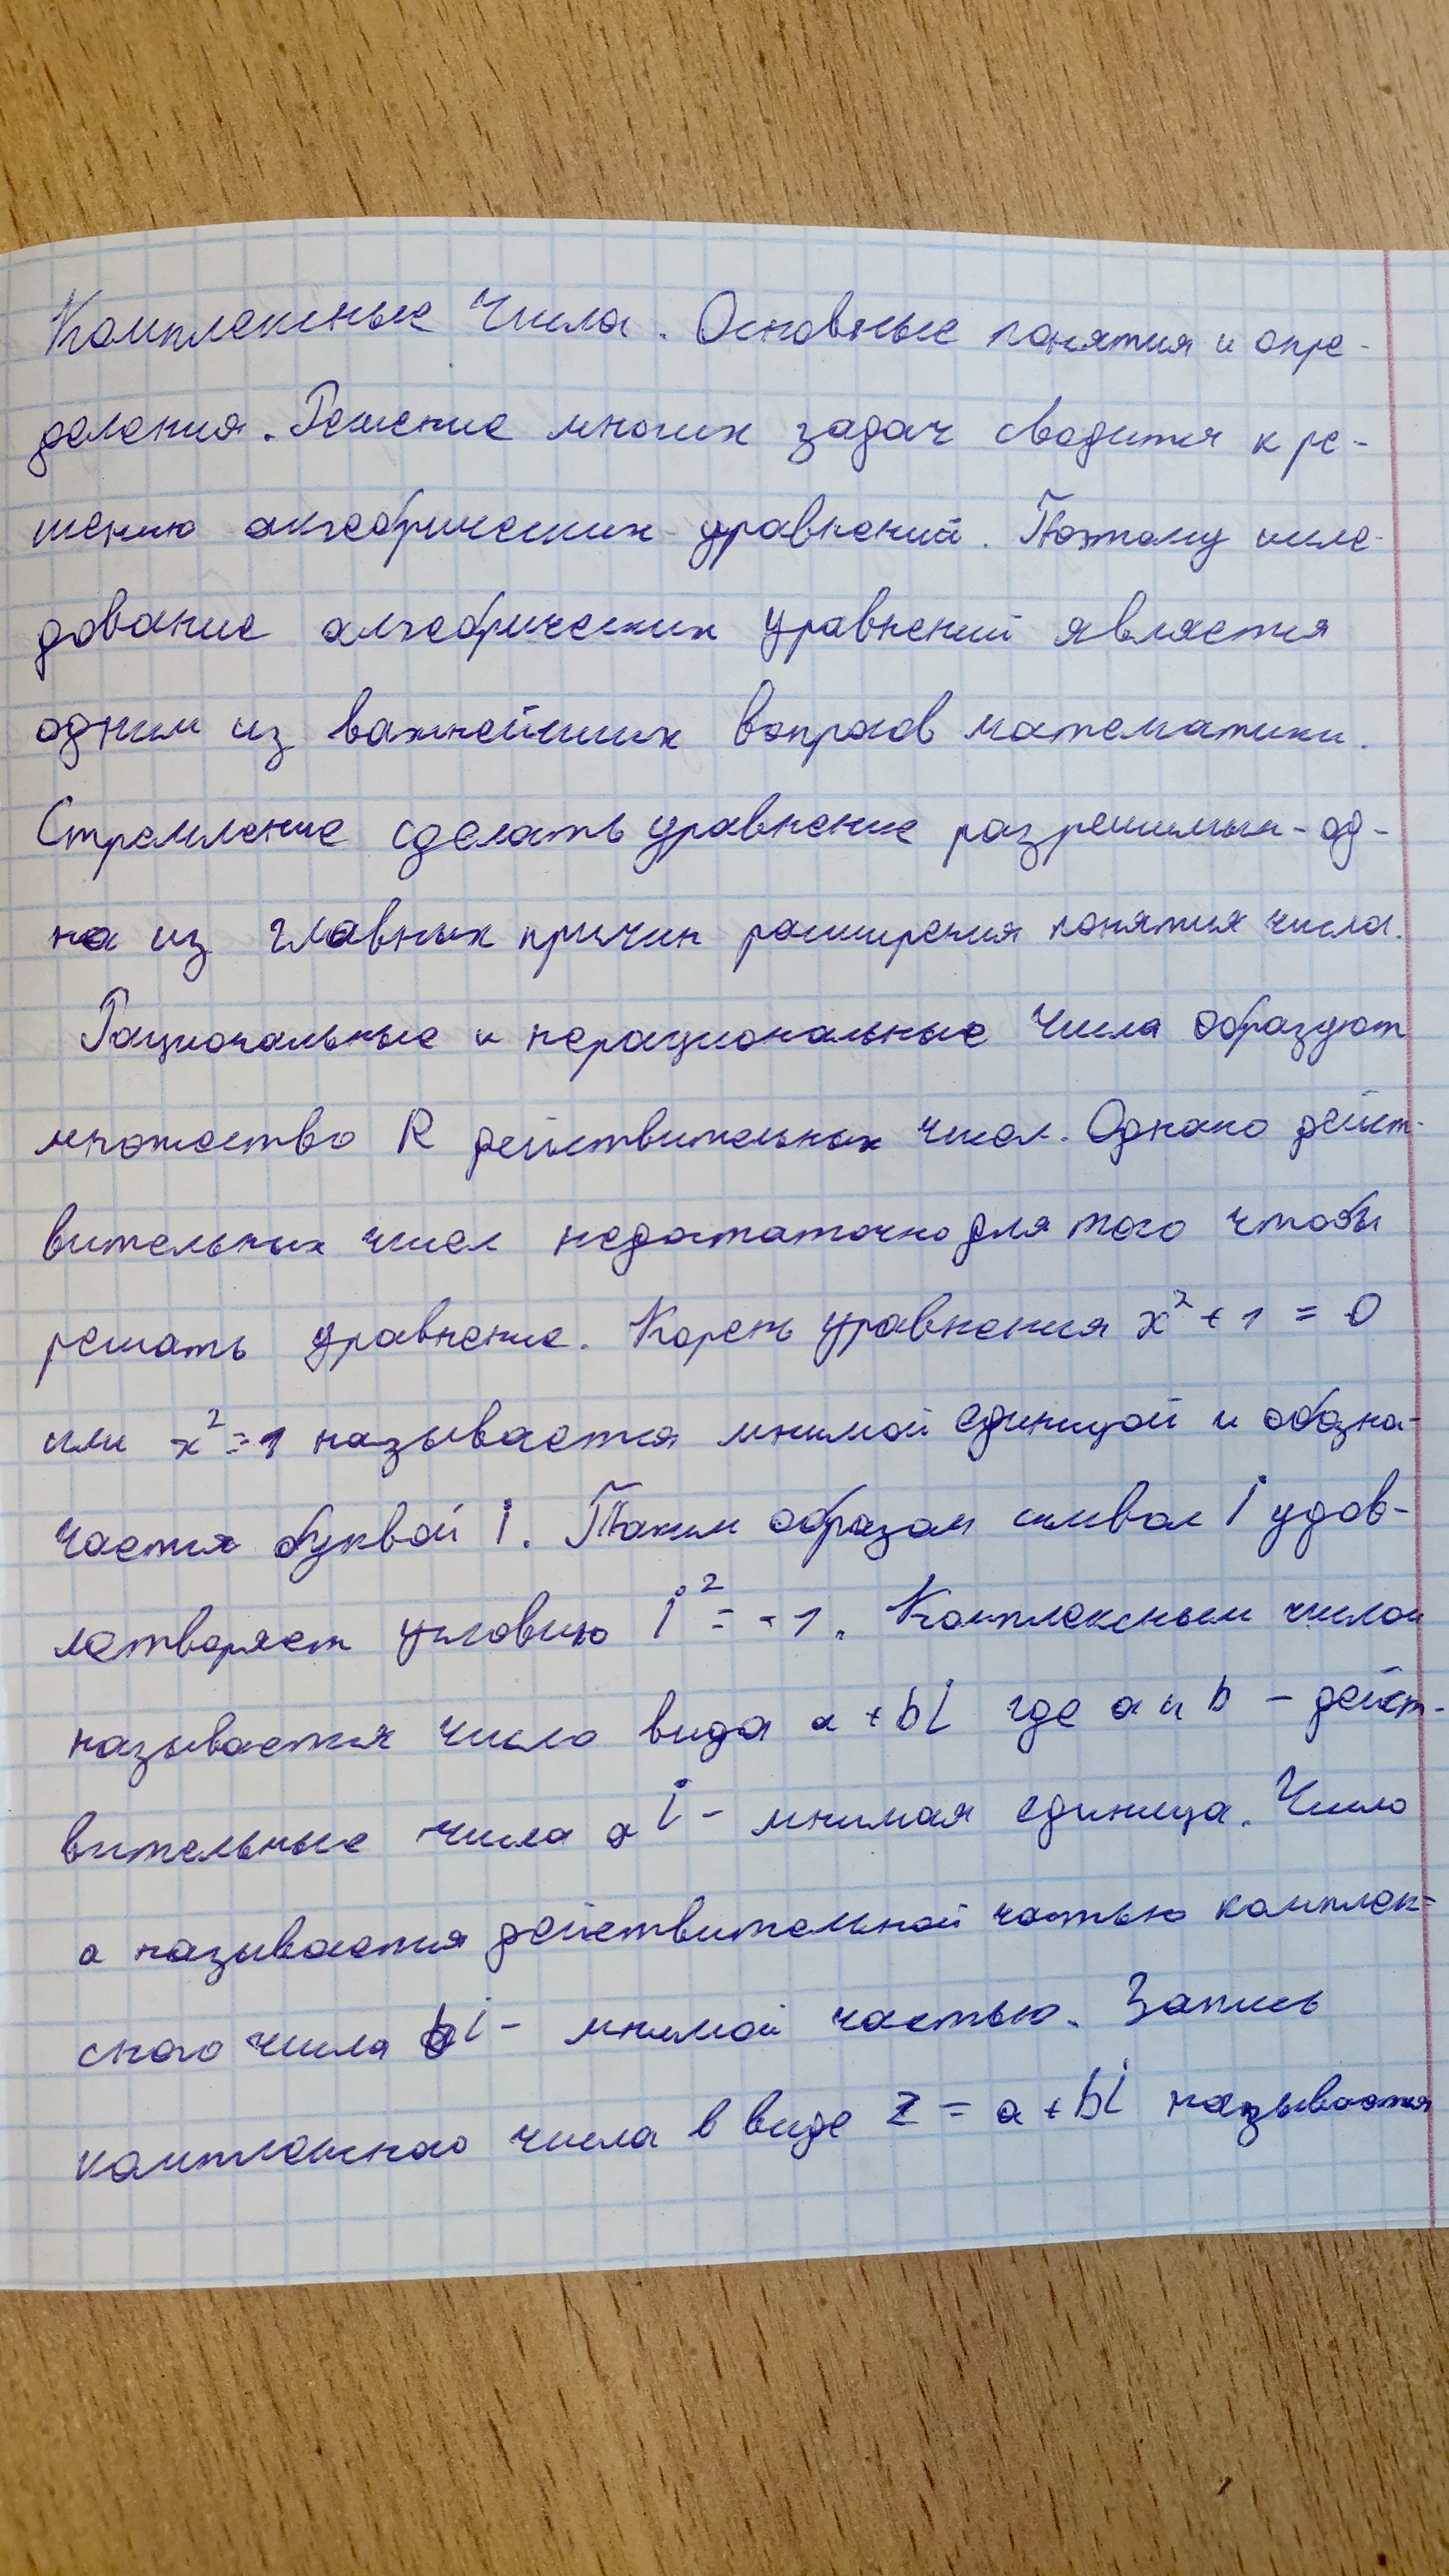 Комплексные Числа. Основные понятия и опре-
деления. Решение многих задач сводится к ре-
шению алгебрических уравнений. Поэтому иссле-
дование алгебрических уравнений является
одним из важнейших вопросов математики.
Стремление сделать уравнение разрешимым - од-
на из главных причин расширения понятия числа.
Рациональные и нерациональные числа образуют
множество R действительных чисел. Однако дейст-
вительных чисел недостаточно для того чтобы
решать уравнение. Корень уравнения x² + 1 = 0
или x² = 1 называется мнимой единицой и обозна-
чается буквой i. Таким образом символ i удов-
летворяет условию i² = -1. Комплексным числом
называется число вида a + bi где a и b - дейст-
вительные числа а i - мнимая единица. Число
a называется действительной частью комплек-
сного числа bi - мнимой частью. Запись
комплексного числа в виде z = a + bi называется